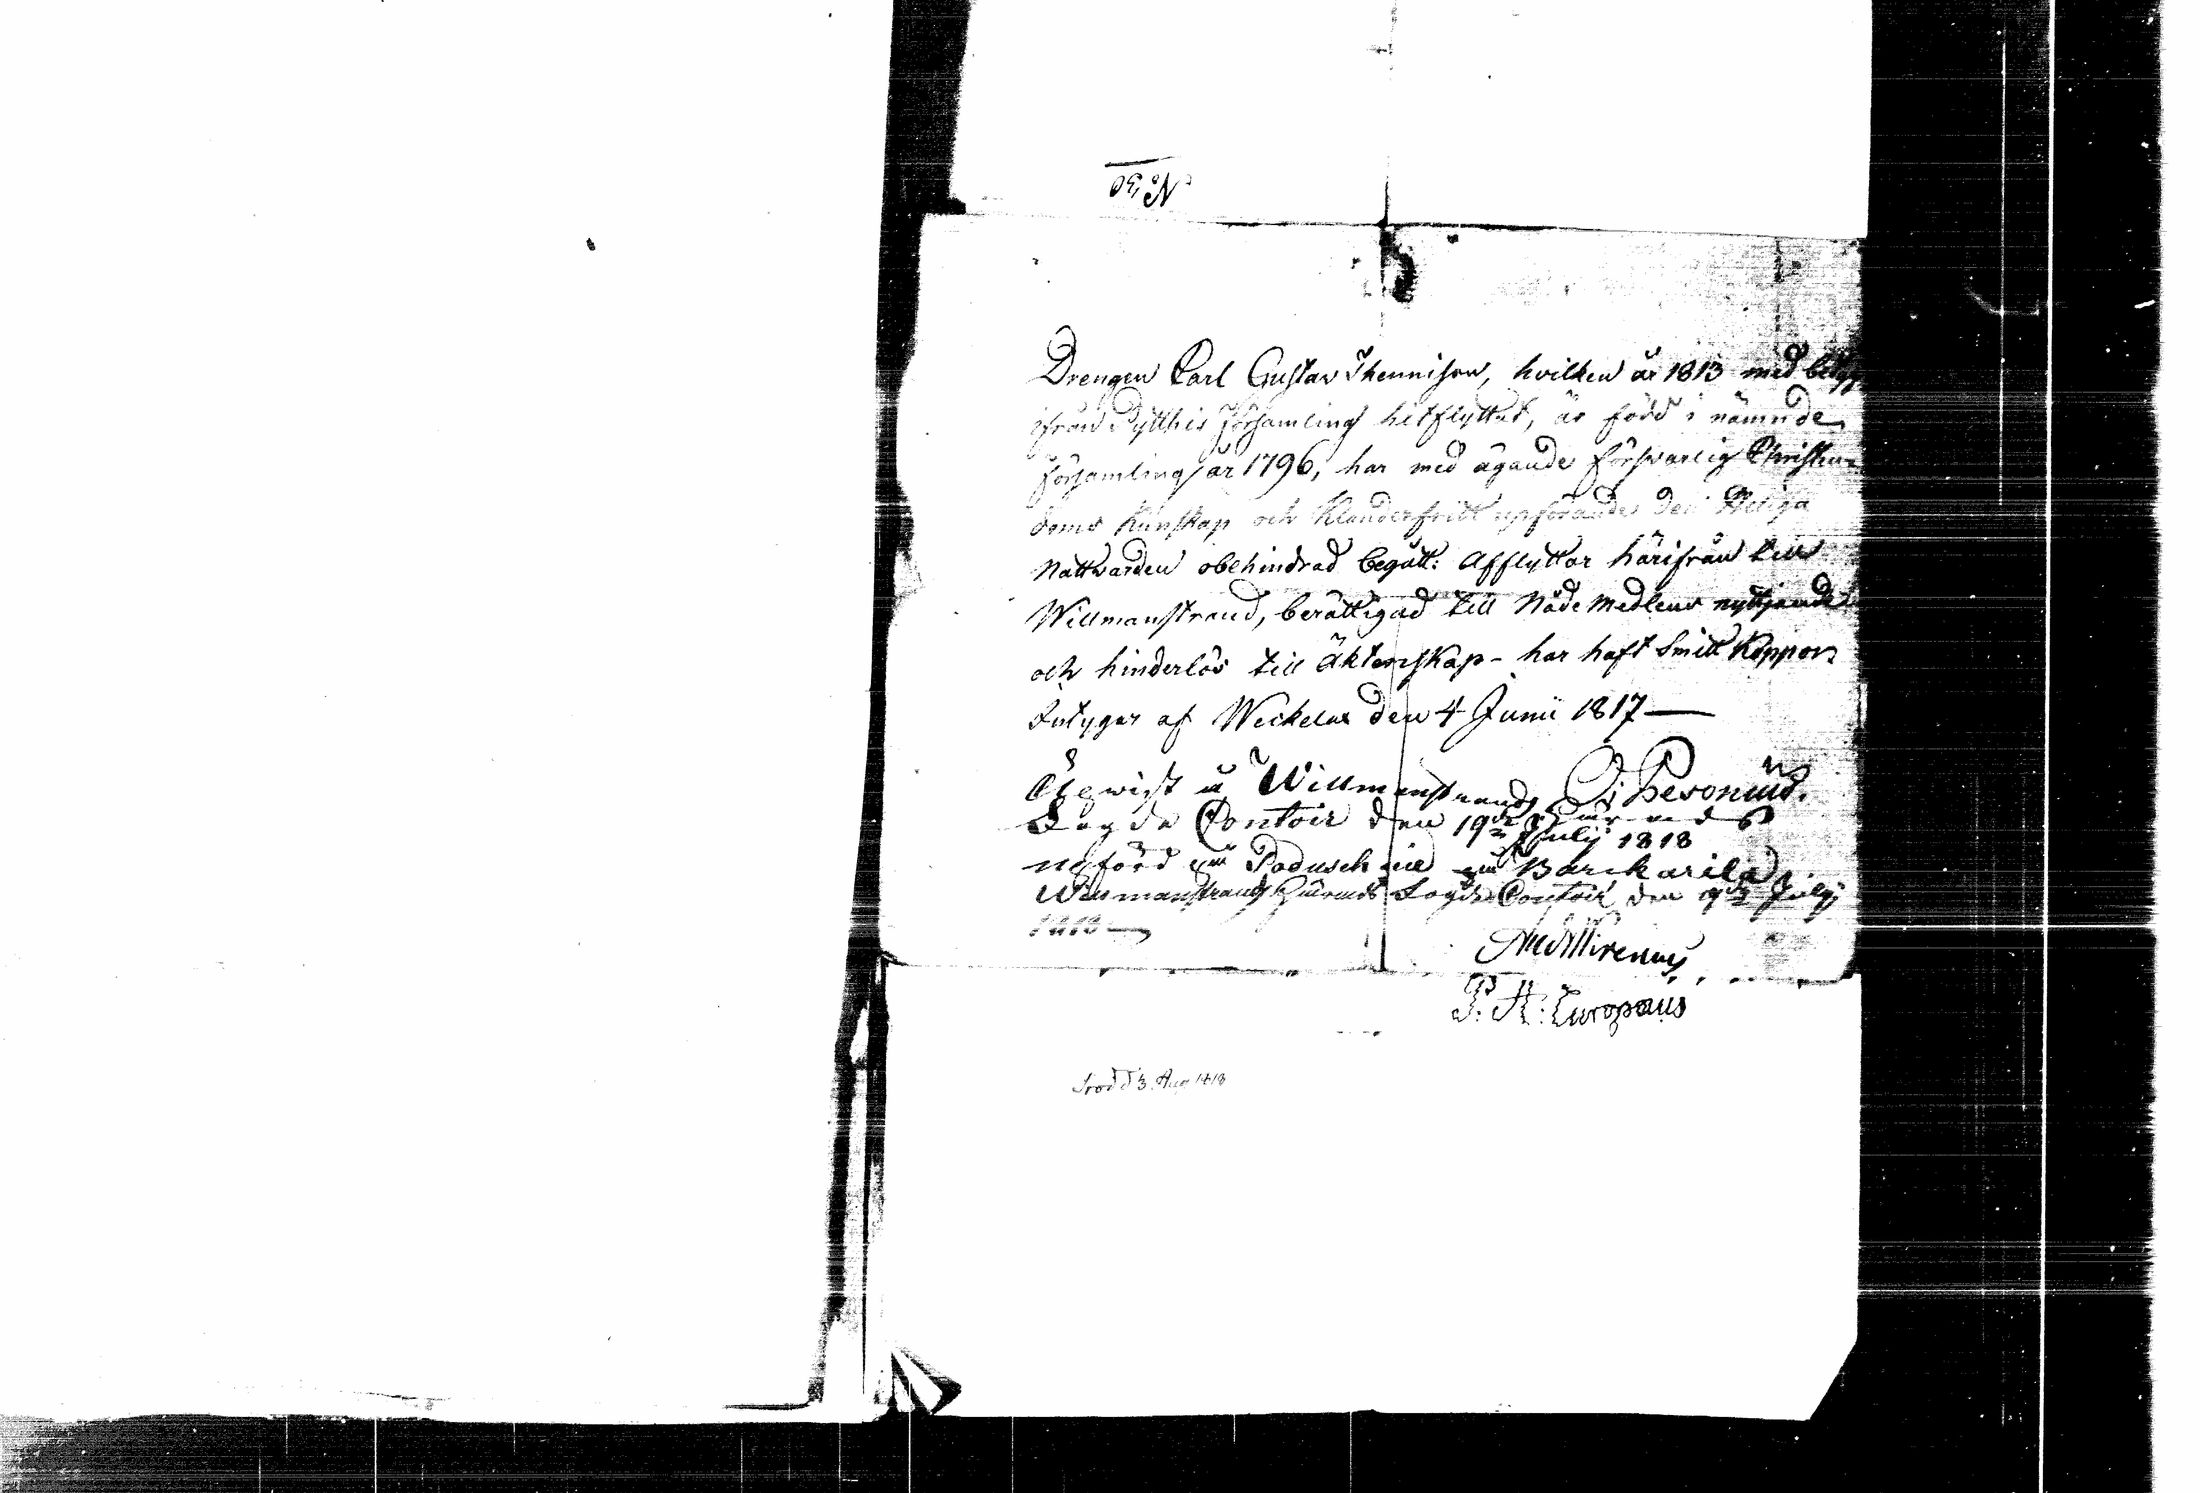 No 30
Drengen Carl Gustav Thennison, hvilken år 1813 med betyg
ifrån Pytthis Församling hitflyttat, är född i nämnde
Församling år 1796, har med ägande försvarlig Christen-
doms Kunskap och Klanderfritt upförande den Heliga
Nattvarden obehindrad begått: Afflyttar härifrån till
Willmanstrand, berättigad till Nåde Medlens nyttjande
och hinderlös till Äktenskap - har haft Smitt Koppor,
Intygar af Weckelax den 4 Junii 1817 —
Upwist å Willmanstrands Härads
Fogde Contoir den 19de Julij 1818
upförd på Paduschin på Barckarila
Willmanstrands Härads Fogde Contoir den 19de Julij
1818 —
P. A: Europæus
d 3 Aug 1818